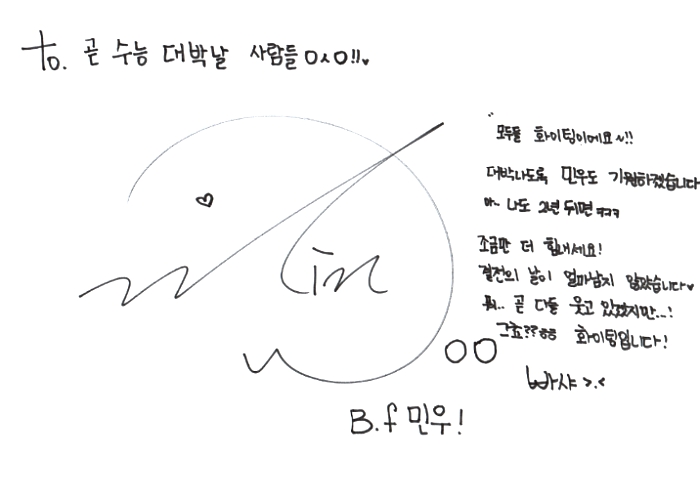 to. 곧 수능 대박날 사람들 ㅇㅅㅇ!!♥
"모두들 화이팅이에요~!!
대박나도록 민우도 기원하겠습니다
아.. 나도 2년 뒤면 ㅋㅋㅋ
조금만 더 힘내세요!
결전의 날이 얼마남지 않았습니다♥
뭐.. 곧 다들 웃고 있겠지만..!
그죠??ㅎㅎ 화이팅입니다!
빠샤 >.<
Min
B.f 민우!